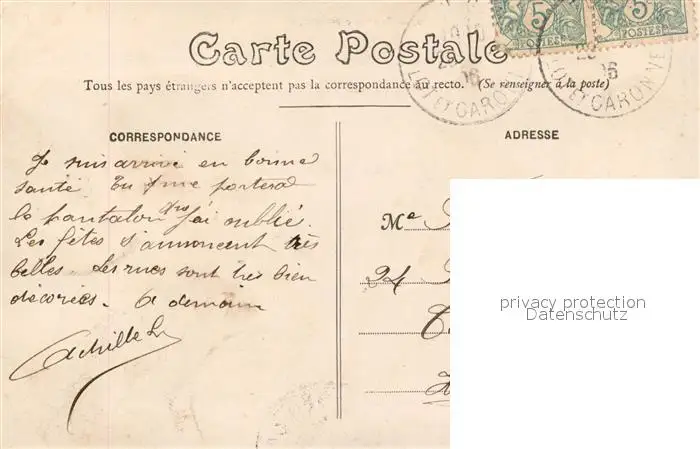 Carte Postale
5
5
POSTES
POSTES
LOT ET GARONNE
06
LOT ET GARONNE
06
Tous les pays étrangers n'acceptent pas la correspondance au recto. (Se renseigner à la poste)
CORRESPONDANCE
ADRESSE
Je suis arrivé en bonne
santé. Tu me porteras
le pantalon que j'ai oublié.
Les fêtes s'annoncent très
belles. Les rues sont très bien
décorées. A demain
Achille L
Me
24
privacy protection
Datenschutz